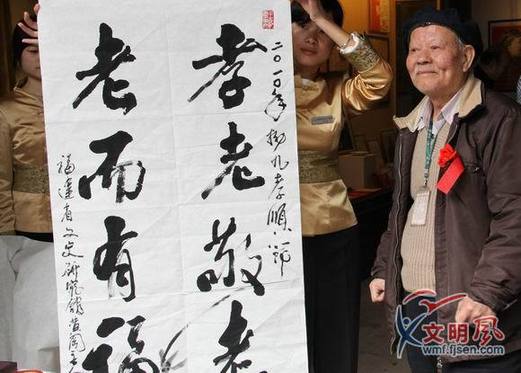 二〇一〇年拗九孝順節
孝老敬老
老而有福
福建省文史研究館
文明风
wmf.fjsen.com